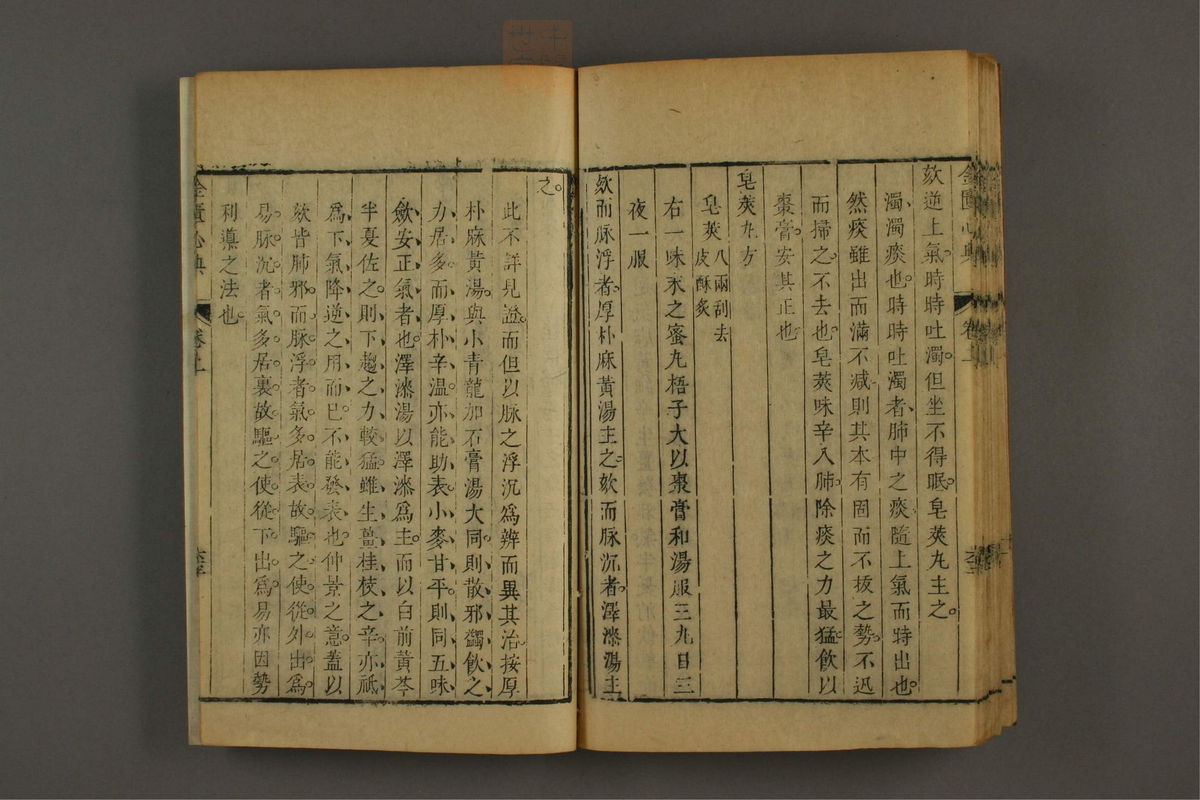 金匱心典 卷上
欬逆上氣時時吐濁但坐不得眠皂莢丸主之。
濁濁痰也時時吐濁者肺中之痰隨上氣而時出也。
然痰雖出而滿不減則其本有固而不拔之勢不迅
而掃之不去也皂莢味辛入肺除痰之力最猛飲以
棗膏安其正也
皂莢丸方
皂莢八兩刮去皮酥炙
右一味末之蜜丸梧子大以棗膏和湯服三丸日三
夜一服
欬而脉浮者厚朴麻黃湯主之欬而脉沉者澤漆湯主
之。
此不詳見證而但以脉之浮沉為辨而異其治按厚
朴麻黃湯與小青龍加石膏湯大同則散邪蠲飲之
力居多而厚朴辛温亦能助表小麥甘平則同五味
斂安正氣者也澤漆湯以澤漆為主而以白前黃芩
半夏佐之則下趨之力較猛雖生薑桂枝之辛亦祇
為下氣降逆之用而已不能發表也仲景之意蓋以
欬皆肺邪而脉浮者氣多居表故驅之使從外出為
易脉沉者氣多居裏故驅之使從下出為易亦因勢
利導之法也
金匱心典 卷上